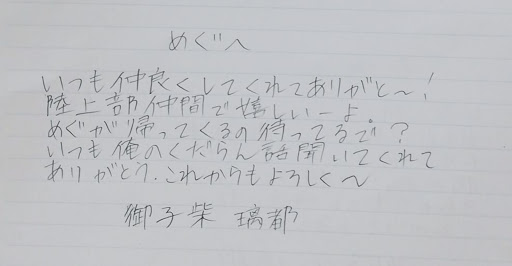 めぐへ
いつも仲良くしてくれてありがと〜!
陸上部仲間で嬉しいーよ。
めぐが帰ってくるの待ってるで?
いつも俺のくだらん話聞いてくれて
ありがとう.これからもよろしく〜
御子柴 璃都